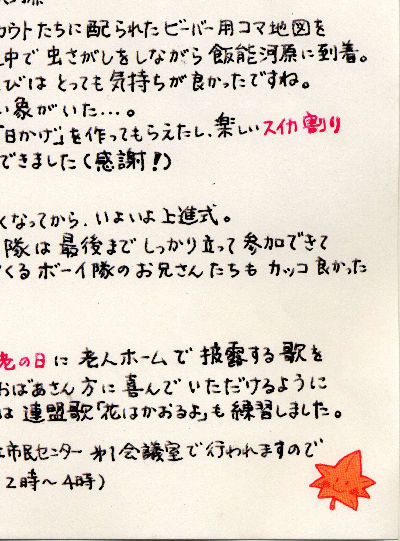 カウトたちに配られたビーバー用コマ地図を
中で虫さがしをしながら飯能河原に到着。
びはとっても気持ちが良かったですね。
い象がいた…。
「日かげ」を作ってもらえたし、楽しいスイカ割り
できました(感謝!)
くなってから、いよいよ上進式。
隊は最後までしっかり立って参加できて
くるボーイ隊のお兄さんたちもカッコ良かった
老の日に老人ホームで披露する歌を
おばあさん方に喜んでいただけるように
は連盟歌「花はかおるよ」も練習しました。
市民センター第1会議室で行われますので
2時〜4時)